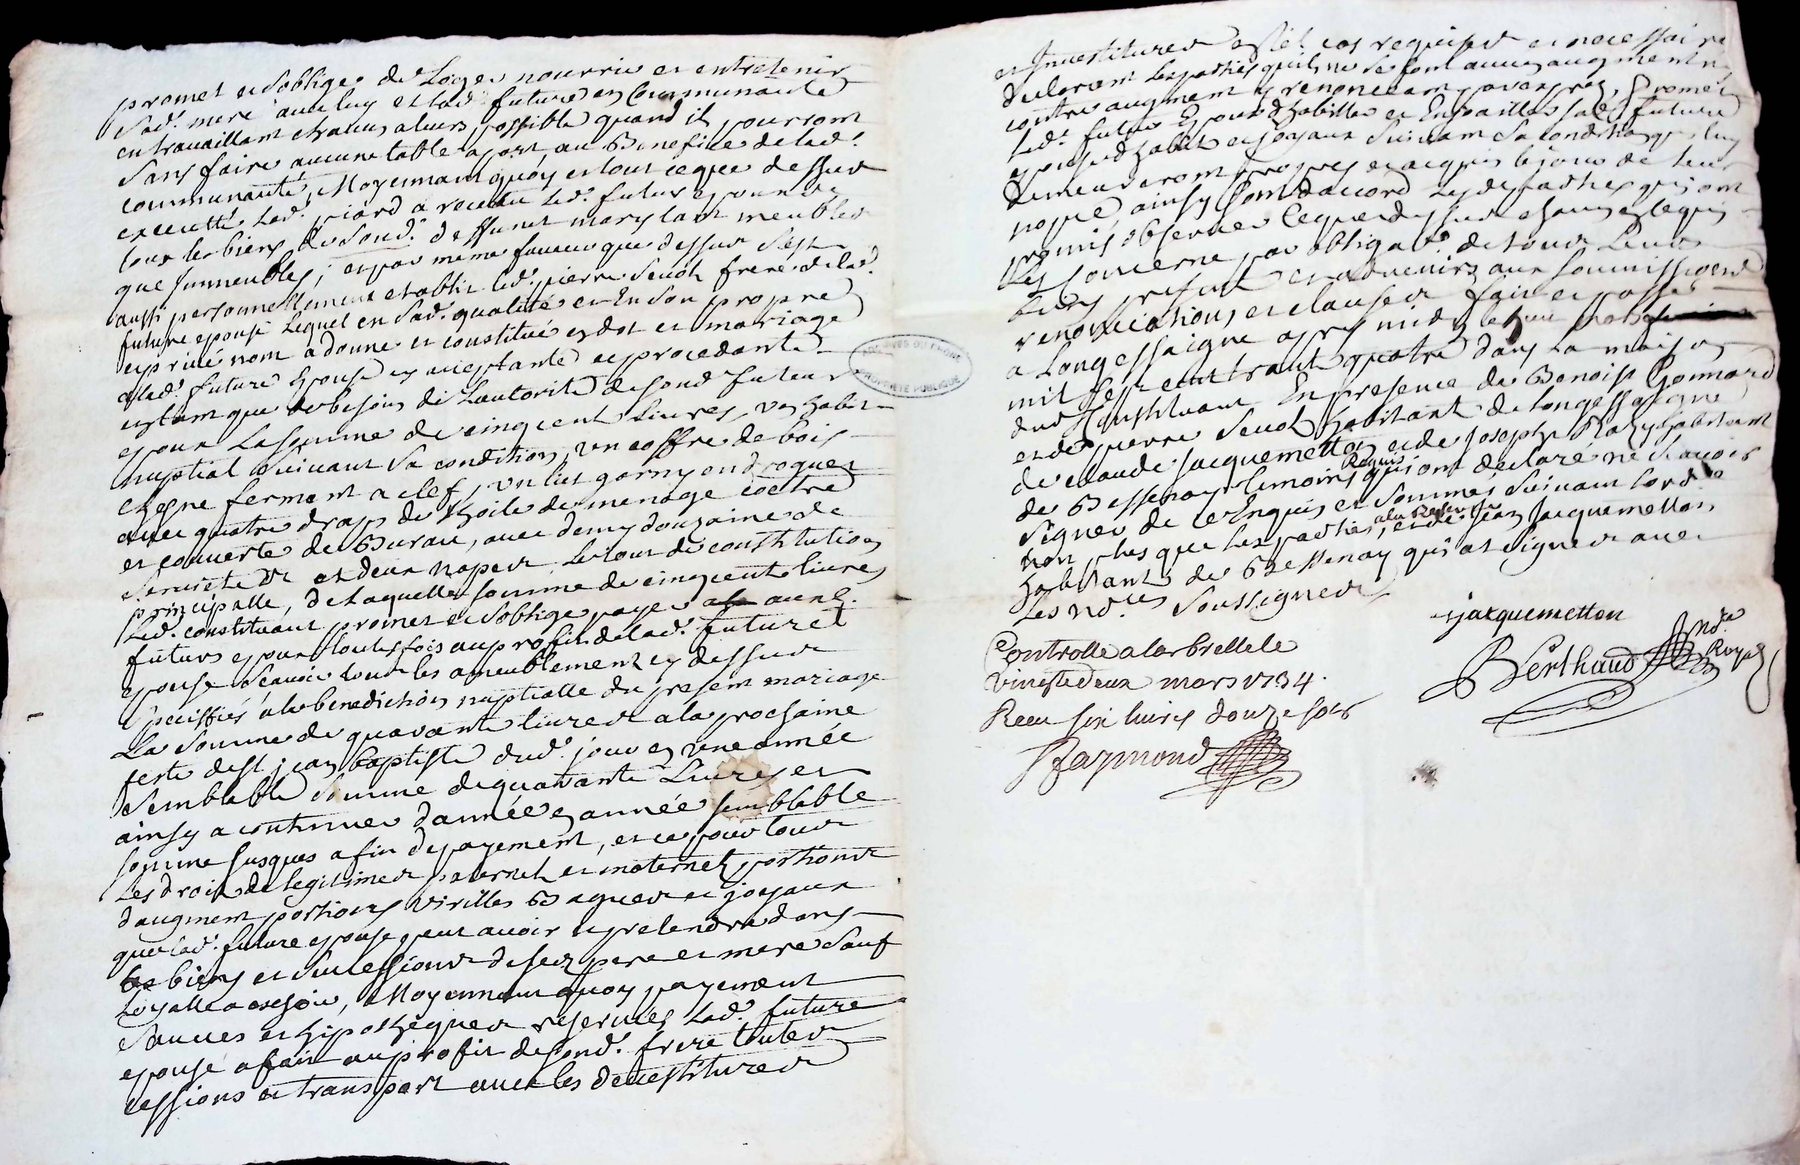 promet et s'oblige de Loger nourrir et entretenir
Sad. mere avec luy et lad. future en Communauté
en travaillant chacun a leurs possible quand ils pourront
Sans faire aucune table a part au Benefice de lad.
communauté, Moyennant quoy et tout ce que dessus
executté, Lad. piard a remis aud. futur epoux
tous les biens de Sond. deffunct mary tant meubles
que Immeubles; et par meme faveur que dessus s'est
aussi personnellement etablit led. pierre Seuch frere de lad.
future epouse Lequel en Sad. qualité et En Son propre
et privé nom a donné et constitué en dot et mariage
a lad. future Epouse en acceptante et procedante
entant que de besoin de L'autorité de sond. futur
epoux La Somme de cinq cent Livres, un habit
nuptial Suivant Sa condition, un coffre de bois
chesne fermant a clef, un lict garny
avec quatre draps de thoile de menage
et couverte de Bureau, avec demy douzaine de
Serviete et deux napes. Le tout de constitution
principalle, de laquelle somme de cinq cent livres
Led. constituant promet et s'oblige payer aux d.
futurs epoux toutesfois au profit de lad. future
epouse Scavoir tout les ameublement cy dessus
Speciffiés a la benediction nuptialle du present mariage
La Somme de quarante livres a la prochaine
feste de St jean Baptiste dud. jour en une année
Semblable Somme de quarante Livres et
ainsy a continuer d'année en année semblable
somme jusques a fin de payement, et ce pour tous
Les droits de legitimes paternel et maternel portions
d'augment portions virilles Bagues et joyaux
que lad. future epouse peut avoir et pretendre dans
les biens et Successions de ses pere et mere Sauf
Loyalle escheoite, Moyennant quoy payement
Sauves et hipotheques reservées Lad. future
epouse a fait au profit de sond. frere toutes
cessions et transport avec les devestitures
et Investitures en tel cas requises et necessaire
declarant Les parties qu'ils ne se font aucun augment ny
contre augment y renoncant par exprés, Promet
led. futur Epoux d'habiller et Enjoailler sad. future
epouse d'habits et joyaux Suivant Sa condition qui luy
demeureront propres et acquis le jour de leur
nopce, ainsy Sont d'accord Lesd. parties qui ont
promis observer Ce que dessus chacun en ce qui
Les Concerne par obligation de tous Leurs
biens present et advenirs aux Soumissions
renonciations et clauses fait et passé
a Longessaigne apres midy
mil sept cent trente quatre dans La maison
dud. Constituant En presence de Benoist Gonnard
et de pierre Seuch habitant de Longessaigne
de claude jacquemetton et de joseph habitant
de Bessenay temoins Requis qui ont declaré ne Scavoir
Signer de ce Enquis et Sommés Suivant L'ordce
non plus que Les parties, a la Reserve de jean jacquemetton
habitant de Bessenay qui a Signé avec
Les ndres Soussignes
jacquemetton
Berthaud Nore Royal
Controlle a larbrelle le
vingtedeux mars 1734.
Receu six livres douze sols
Raymond
ARCHIVES DU RHONE
PROPRIÉTÉ PUBLIQUE